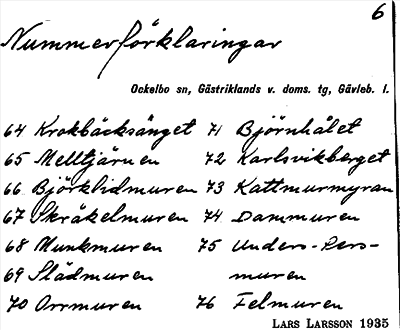 6
Nummerförklaringar
Ockelbo sn, Gästriklands v. doms. tg, Gävleb. l.
64 Krokbäcksänget
65 Melltjärnen
66 Björklidmuren
67 Skräkelmuren
68 Munkmuren
69 Slädmuren
70 Orrmuren
71 Björnhålet
72 Karlsvikberget
73 Kattmurmyran
74 Dammuren
75 Anders-Pers-
muren
76 Felmuren
LARS LARSSON 1935